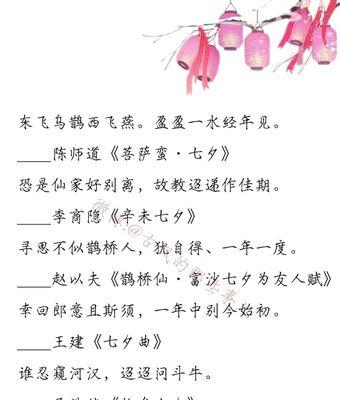 东飞乌鹊西飞燕。盈盈一水经年见。
____陈师道《菩萨蛮·七夕》
恐是仙家好别离，故教迢递作佳期。
____李商隐《辛未七夕》
寻思不似鹊桥人，犹自得、一年一度。
____赵以夫《鹊桥仙·富沙七夕为友人赋》
幸回郎意且斯须，一年中别今始初。
____王建《七夕曲》
谁忍窥河汉，迢迢问斗牛。